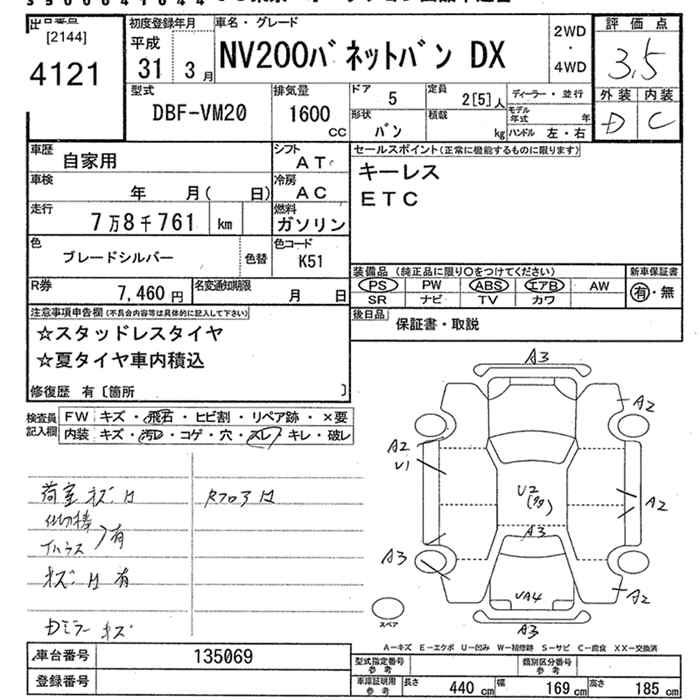 [2144]
4121
初度登録年月
平成
31 3月
車名・グレード
NV200バネットバン DX
2WD
・
4WD
評価点
3.5
外装 内装
D C
型式
DBF-VM20
排気量
1600
CC
ドア 5
定員 2[5]人
形状 バン
積載 kg
ディーラー・並行
モデル年式 年
ハンドル 左・右
車歴 自家用
シフト AT
車検 年 月( 日)
冷房 AC
走行 7万8千761 km
燃料 ガソリン
色 ブレードシルバー
色替
色コード K51
R券 7,460円
名変通知期限 月 日
セールスポイント(正常に機能するものに限ります)
キーレス
ETC
装備品 (純正品に限り○をつけてください)
PS PW ABS エアB AW
SR ナビ TV カワ
新車保証書
有・無
後日品 保証書・取説
注意事項申告欄(不具合内容等は具体的に記入して下さい)
☆スタッドレスタイヤ
☆夏タイヤ車内積込
修復歴 有〔箇所 〕
検査員記入欄
FW キズ・飛石・ヒビ割・リペア跡・×要
内装 キズ・汚レ・コゲ・穴・スレ・キレ・破レ
荷室 キズ
有
有
Dミラー キズ
Rフロア
A3
A2
A2
U1
U2
A2
A3
A3
A2
UA4
A3
スペア
A−キズ E−エクボ U−凹み W−補修跡 S−サビ C−腐食 XX−交換済
車台番号 135069
登録番号
型式指定番号 参考
類別区分番号 参考
車庫証明用 参考
長さ 440 cm 幅 169 cm 高さ 185 cm